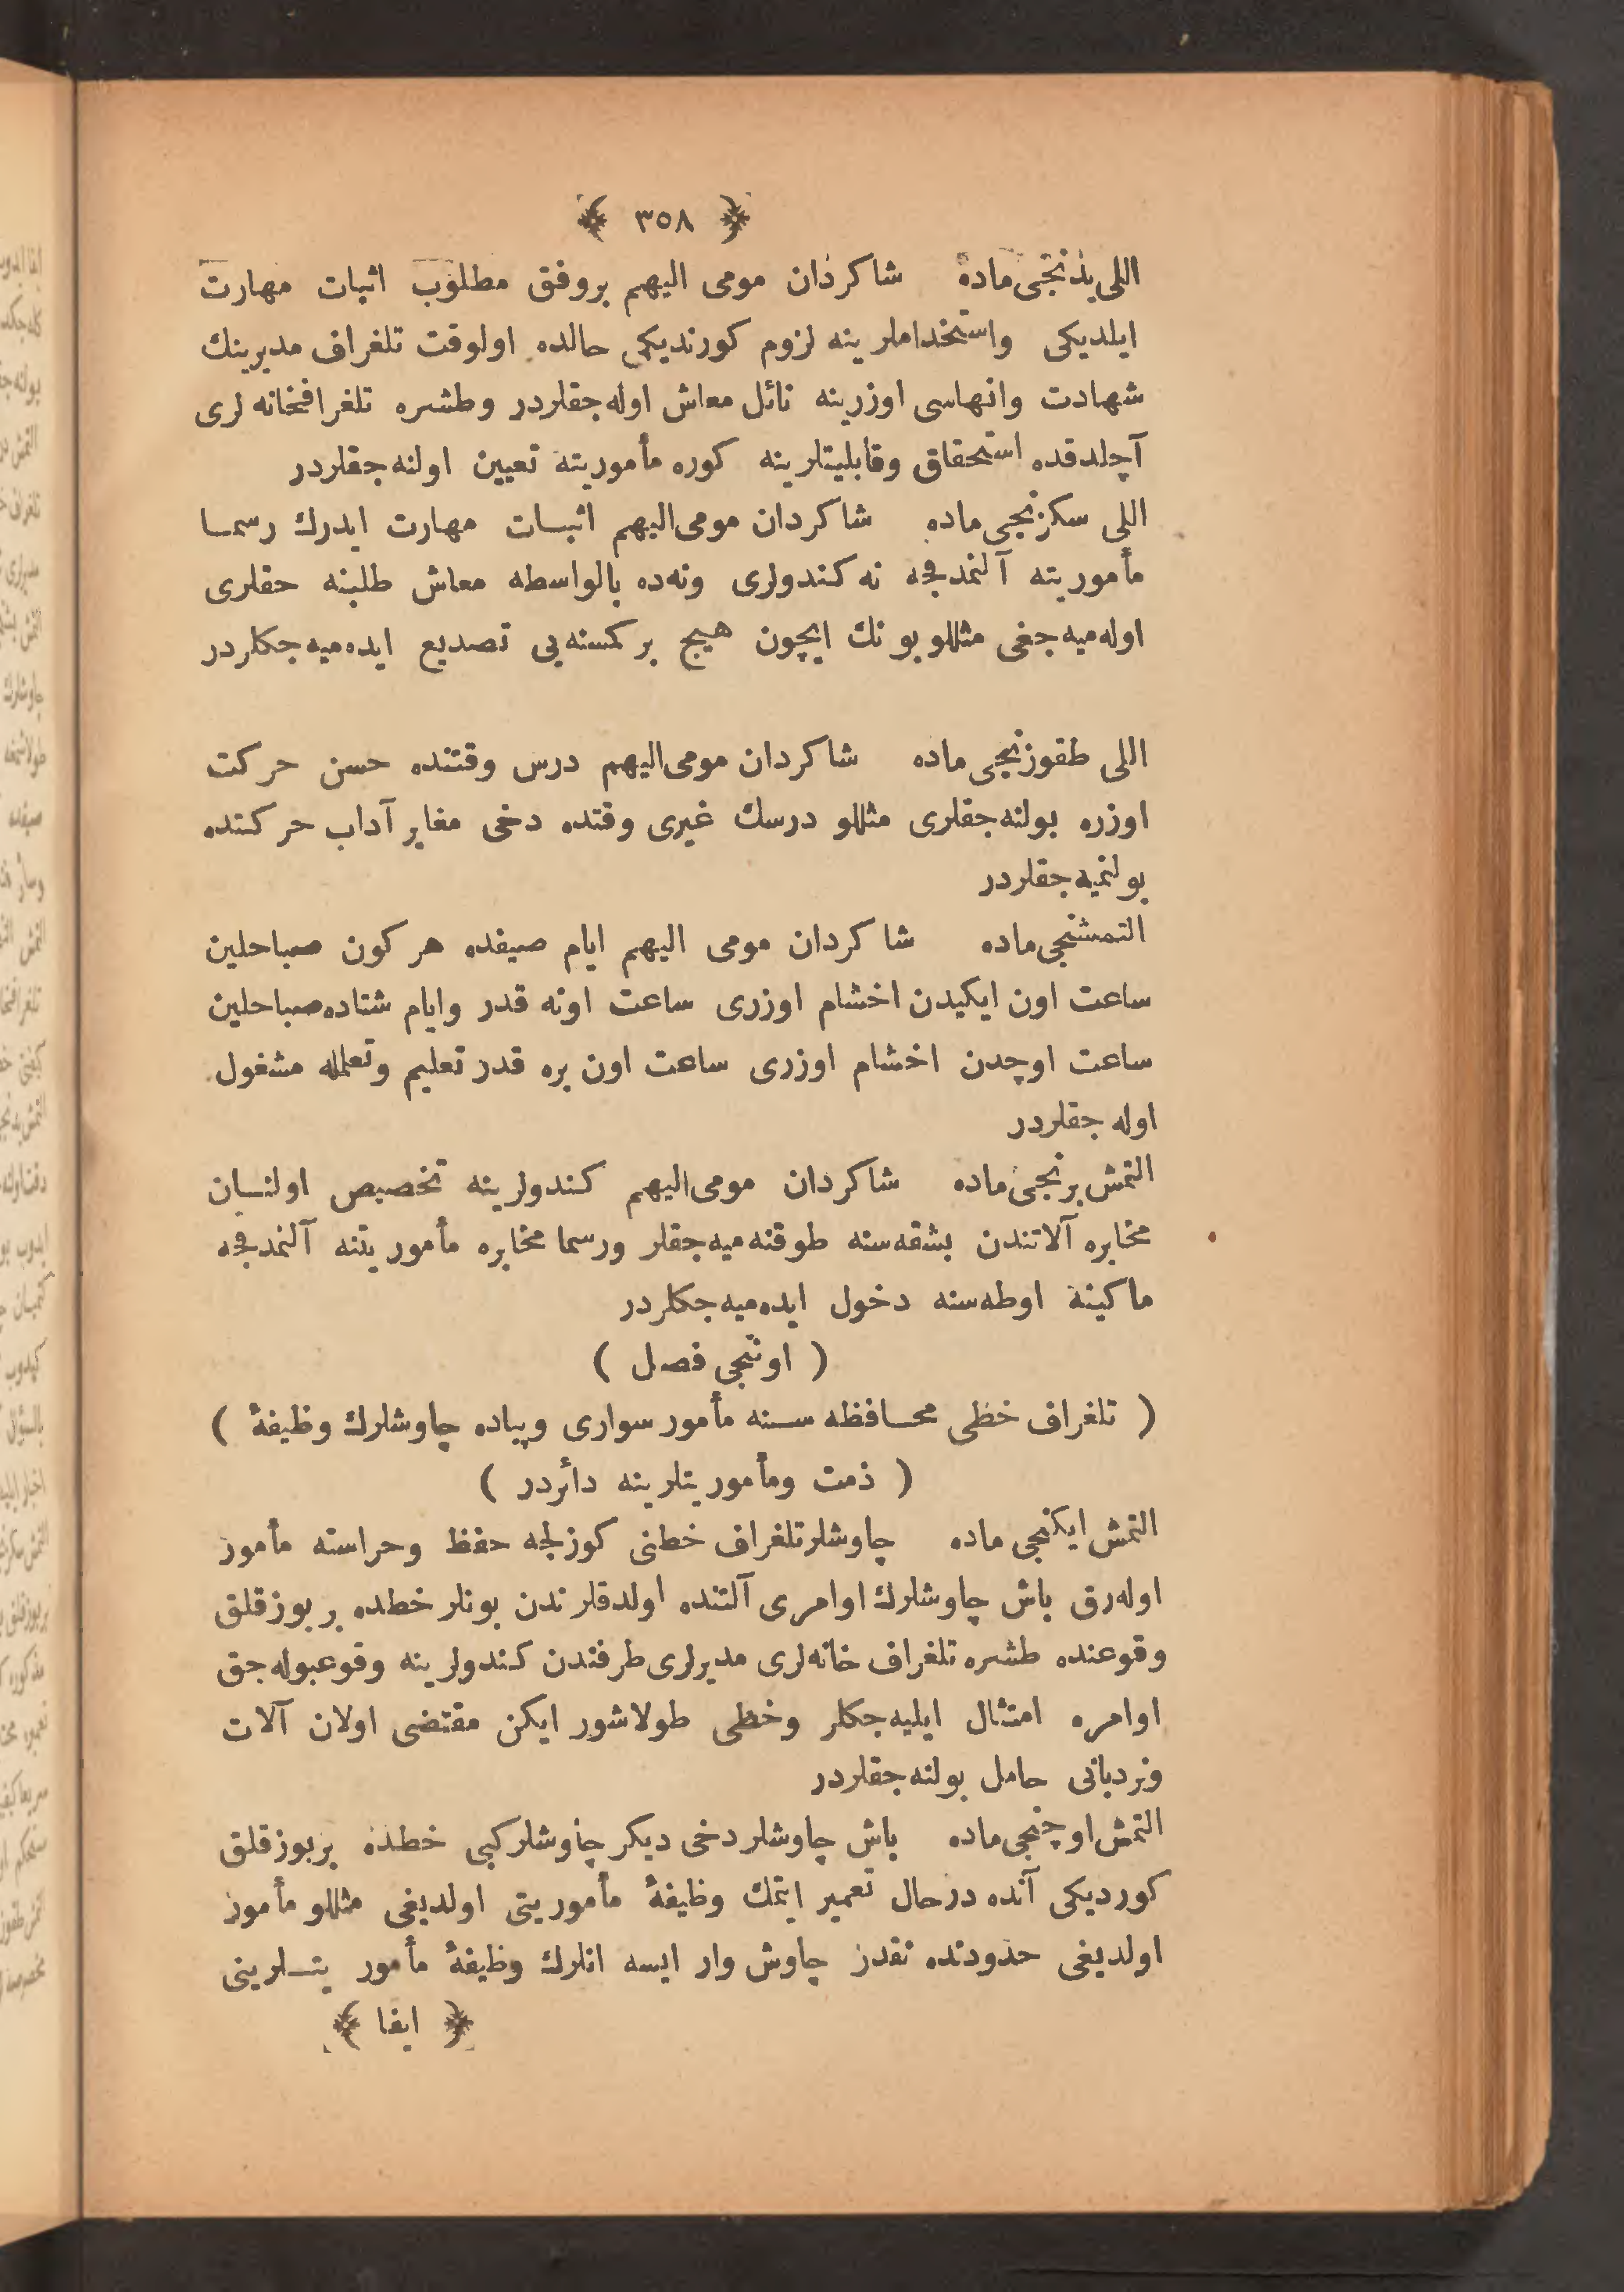 ﴿ ٣٥٨ ﴾
اللی یدنجی ماده شاکردان مومی الیهم بروفق مطلوب اثبات مهارت
ایلدیکی واستخداملرینه لزوم کورندیکی حالده اولوقت تلغراف مدیرینك
شهادت وانهاسی اوزرینه نائل معاش اوله‌جقلردر وطشره تلغرافخانه لری
آچلدقده استحقاق وقابلیتلرینه کوره مأموریته تعیین اولنه‌جقلردر
اللی سکزنجی ماده شاکردان مومی‌الیهم اثبات مهارت ایدرك رسما
مأموریته آلنمدقجه نه کندولری ونه‌ده بالواسطه معاش طلبنه حقلری
اوله‌میه‌جغی مثللو بونك ایچون هیچ بر کسنه‌یی تصدیع ایده‌میه‌جکلردر
اللی طقوزنجی ماده شاکردان مومی‌الیهم درس وقتنده حسن حرکت
اوزره بولنه‌جقلری مثللو درسك غیری وقتده دخی مغایر آداب حرکتده
بولنمیه‌جقلردر
التمشنجی ماده شاکردان مومی الیهم ایام صیفده هر کون صباحلین
ساعت اون ایکیدن اخشام اوزری ساعت اونه قدر وایام شتاده صباحلین
ساعت اوچدن اخشام اوزری ساعت اون بره قدر تعلیم وتعلمله مشغول
اوله جقلردر
التمش برنجی ماده شاکردان مومی‌الیهم کندولرینه تخصیص اولنان
مخابره آلاتندن بشقه‌سنه طوقنه‌میه‌جقلر ورسما مخابره مأموریتنه آلنمدقجه
ماکینه اوطه‌سنه دخول ایده‌میه‌جکلردر
( اونجی فصل )
( تلغراف خطی محافظه سنه مأمور سواری وپیاده چاوشلرك وظیفهٔ )
( ذمت ومأموریتلرینه دائردر )
التمش ایکنجی ماده چاوشلر تلغراف خطنی کوزلجه حفظ وحراسته مأمور
اوله‌رق باش چاوشلرك اوامری آلتنده اولدقلرندن بونلر خطده بر بوزقلق
وقوعنده طشره تلغراف خانه‌لری مدیرلری طرفندن کندولرینه وقوعبوله‌جق
اوامره امتثال ایلیه‌جکلر وخطی طولاشور ایکن مقتضی اولان آلات
ونردبانی حامل بولنه‌جقلردر
التمش اوچنجی ماده باش چاوشلر دخی دیکر چاوشلر کبی خطده بربوزقلق
کوردیکی آنده درحال تعمیر ایتمك وظیفهٔ مأموریتی اولدیغی مثللو مأمور
اولدیغی حدودنده نقدر چاوش وار ایسه انلرك وظیفهٔ مأمور یتلرینی
﴿ ایفا ﴾